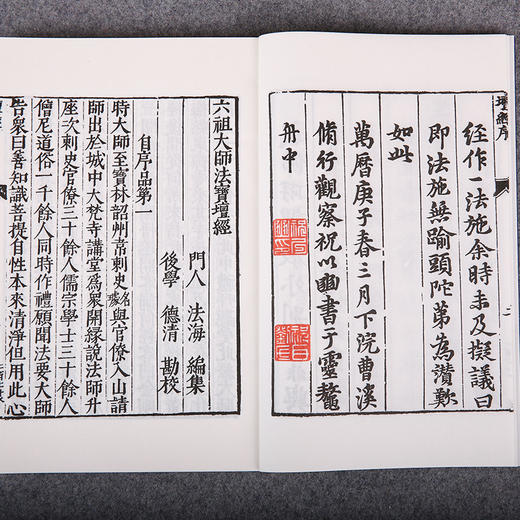 壇經序
經作一法施余時未及擬議曰
即法施無踰頭陀第為讚歎
如此
萬曆庚子春三月下院曹溪
脩行觀察祝以豳書于靈鰲
舟中
六祖大師法寶壇經
門人 法海 編集
後學 德清 勘校
自序品第一
時大師至寶林韶州韋刺史名璩與官僚入山請
師出於城中大梵寺講堂為眾開緣說法師升
座次刺史官僚三十餘人儒宗學士三十餘人
僧尼道俗一千餘人同時作禮願聞法要大師
告眾曰善知識菩提自性本來清淨但用此心